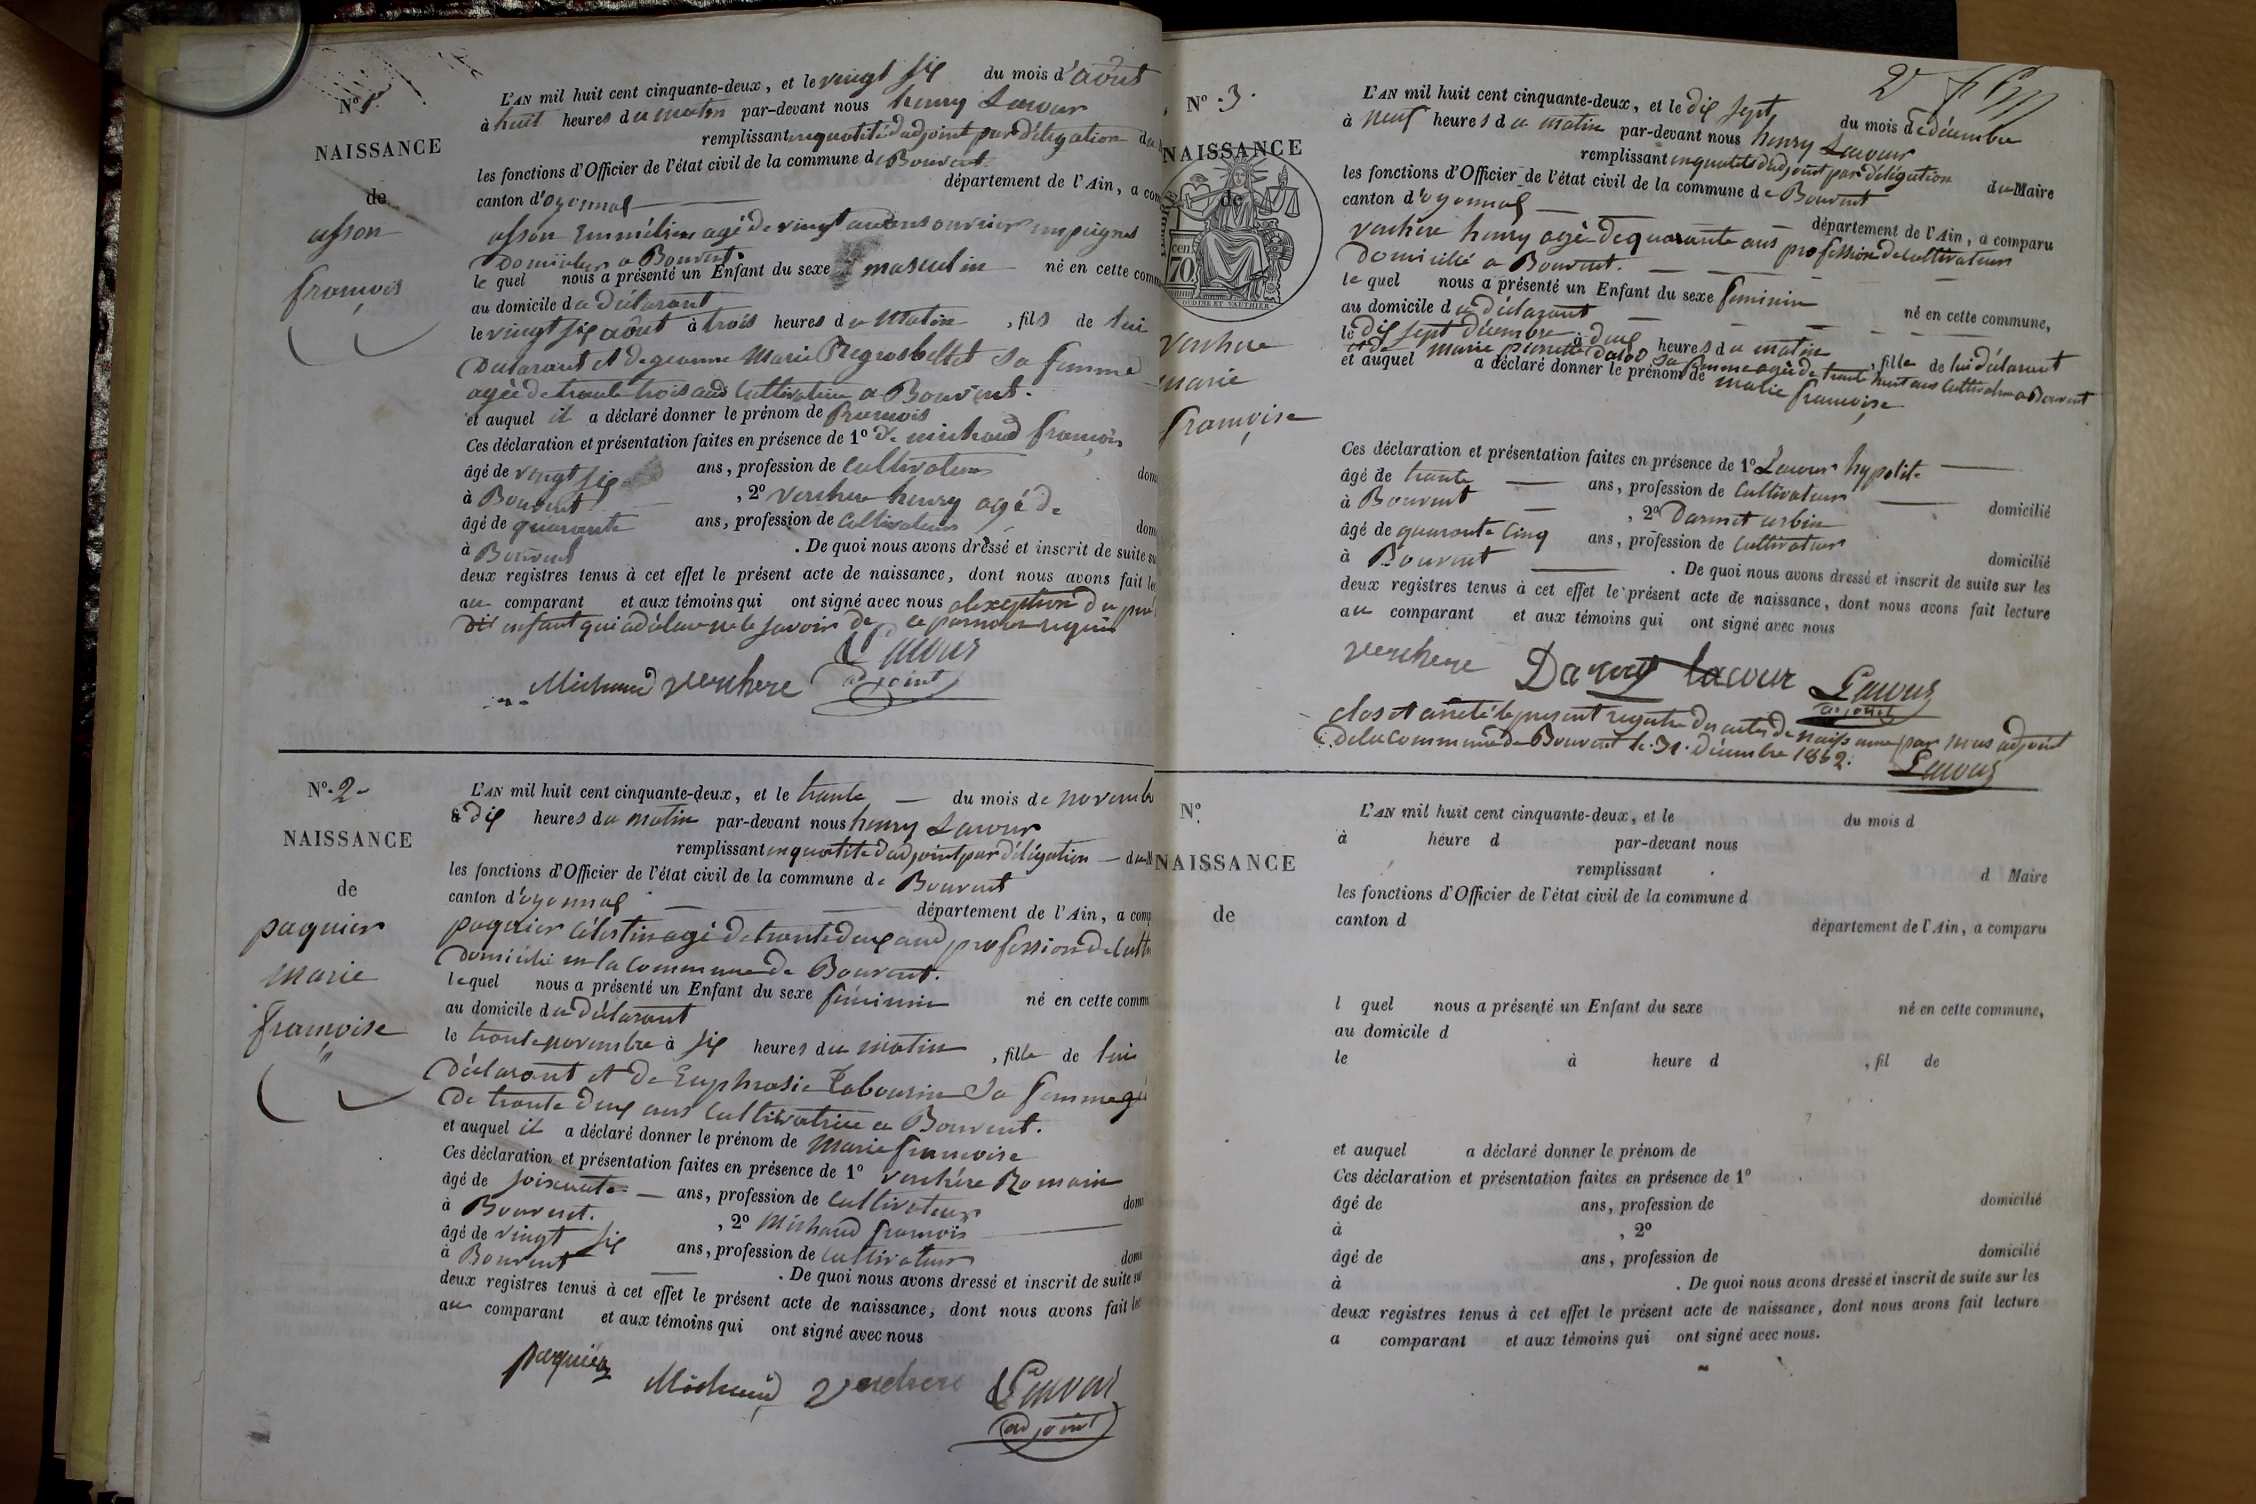 N° 1
NAISSANCE
de
asson
françois
L'AN mil huit cent cinquante-deux, et le vingt six du mois d'août
à huit heures du matin par-devant nous henry Lacour
remplissant en qualité d'adjoint par délégation du
les fonctions d'Officier de l'état civil de la commune de Bouvent
canton d'oyonnax département de l'Ain, a com
asson agé de vingt ans ouvrier
domicilier a Bouvent.
le quel nous a présenté un Enfant du sexe masculin né en cette comm
au domicile du déclarant
le vingt six août à trois heures du matin, fils de lui
Déclarant et de jeanne Marie sa femme
agée de trente trois ans Cultivatrice a Bouvent.
et auquel il a déclaré donner le prénom de françois
Ces déclaration et présentation faites en présence de 1° de michaud françois
âgé de vingt six ans, profession de Cultivateur dom
à Bouvent, 2° Verchere henry agé de
âgé de quarante ans, profession de Cultivateur dom
à Bouvent. De quoi nous avons dressé et inscrit de suite su
deux registres tenus à cet effet le présent acte de naissance, dont nous avons fait le
au comparant et aux témoins qui ont signé avec nous a l'exception du
dit enfant qui a déclaré ne le savoir de ce par nous requis
Lacour
Michaud verchere adjoint
N° 2
NAISSANCE
de
paquier
marie
françoise
L'AN mil huit cent cinquante-deux, et le trente du mois de novemb
à dix heures du matin par-devant nous henry Lacour
remplissant en qualité d'adjoint par délégation du M
les fonctions d'Officier de l'état civil de la commune de Bouvent
canton d'oyonnax département de l'Ain, a comp
paquier Célestin agé de trente deux ans profession de Cult
Domicilié en la commune de Bouvent.
le quel nous a présenté un Enfant du sexe féminin né en cette comm
au domicile du déclarant
le trente novembre à six heures du matin, fille de lui
déclarant et de Euphrosie Tabourin sa femme
de trente deux ans Cultivatrice a Bouvent.
et auquel il a déclaré donner le prénom de marie françoise
Ces déclaration et présentation faites en présence de 1° verchére Romain
âgé de soixante ans, profession de Cultivateur dom
à Bouvent., 2° Michaud françois
âgé de vingt six ans, profession de Cultivateur dom
à Bouvent. De quoi nous avons dressé et inscrit de suite su
deux registres tenus à cet effet le présent acte de naissance, dont nous avons fait lec
au comparant et aux témoins qui ont signé avec nous
paquier
Michaud Verchere Lacour
adjoint
N° 3
NAISSANCE
de
Verchere
marie
françoise
cen
70
L'AN mil huit cent cinquante-deux, et le dix sept du mois de décembre
à neuf heures du matin par-devant nous henry Lacour
remplissant en qualité d'adjoint par délégation du Maire
les fonctions d'Officier de l'état civil de la commune de Bouvent
canton d'oyonnax département de l'Ain, a comparu
verchère henry agé de quarante ans profession de Cultivateur
domicilié a Bouvent.
le quel nous a présenté un Enfant du sexe féminin né en cette commune,
au domicile du déclarant
le dix sept décembre à deux heures du matin, fille de lui déclarant
et de marie pierrette sa femme agée de trente huit ans Cultivatrice a Bouvent
et auquel a déclaré donner le prénom de marie françoise
Ces déclaration et présentation faites en présence de 1° Lacour hypolite
âgé de trente ans, profession de Cultivateur domicilié
à Bouvent, 2° Darmet urbin
âgé de quarante Cinq ans, profession de Cultivateur domicilié
à Bouvent. De quoi nous avons dressé et inscrit de suite sur les
deux registres tenus à cet effet le présent acte de naissance, dont nous avons fait lecture
au comparant et aux témoins qui ont signé avec nous
verchere lacour Lacour
adjoint
clos et arrêté le présent registre des actes de naissance par nous adjoint
de la commune de Bouvent le 31 décembre 1852.
Lacour
N°
NAISSANCE
de
L'AN mil huit cent cinquante-deux, et le du mois d
à heure d par-devant nous
remplissant d Maire
les fonctions d'Officier de l'état civil de la commune d
canton d département de l'Ain, a comparu
l quel nous a présenté un Enfant du sexe né en cette commune,
au domicile d
le à heure d, fil de
et auquel a déclaré donner le prénom de
Ces déclaration et présentation faites en présence de 1°
âgé de ans, profession de domicilié
à, 2°
âgé de ans, profession de domicilié
à. De quoi nous avons dressé et inscrit de suite sur les
deux registres tenus à cet effet le présent acte de naissance, dont nous avons fait lecture
a comparant et aux témoins qui ont signé avec nous.